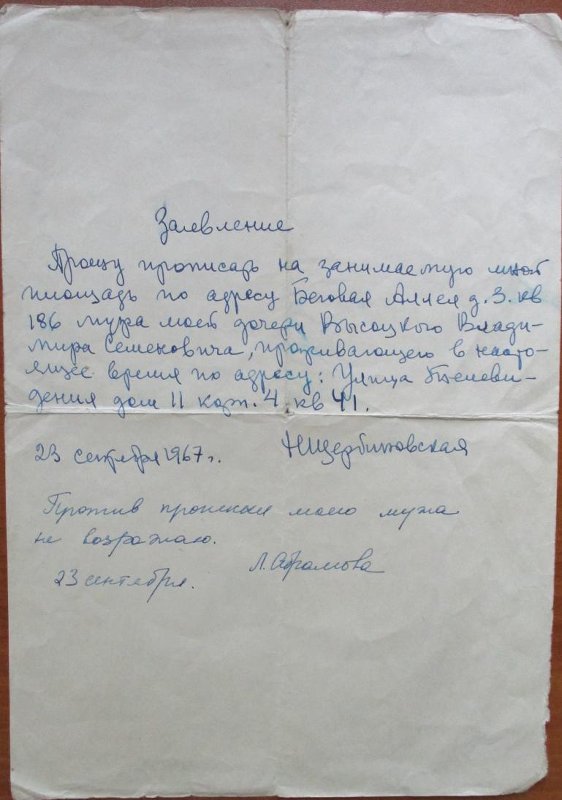 Заявление
Прошу прописать на занимаемую мной
площадь по адресу Беговая Аллея д. 3. кв
186 мужа моей дочери Высоцкого Влади-
мира Семеновича, проживающего в насто-
ящее время по адресу: Улица Телеви-
дения дом 11 корп. 4 кв 41.
23 сентября 1967 г.
НЩербиновская
Против прописки моего мужа
не возражаю.
Л. Абрамова
23 сентября.